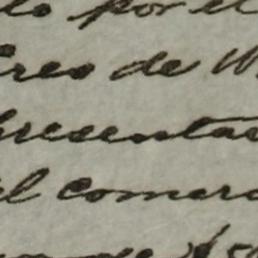 do por el
Creo de
presentac
el comerc